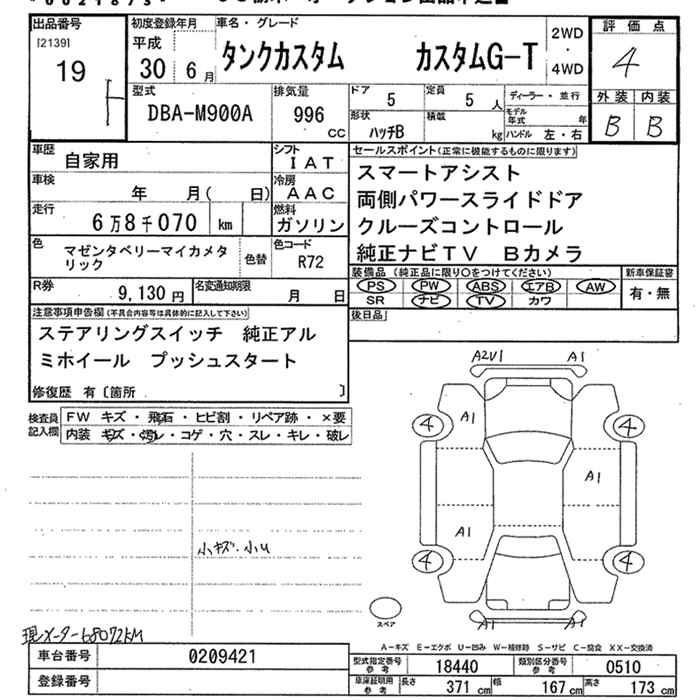 出品番号
[2139]
19
初度登録年月
平成
30 6月
車名・グレード
タンクカスタム カスタムG-T
2WD
・
4WD
評価点
4
外装 内装
B B
型式
DBA-M900A
排気量
996
CC
ドア
5
定員
5 人
形状
ハッチB
積載
kg
ディーラー・並行
モデル年式 年
ハンドル 左・右
車歴
自家用
シフト
IAT
車検
年 月( 日)
冷房
AAC
走行
6万8千070 km
燃料
ガソリン
色
マゼンタベリーマイカメタ
リック
色替
色コード
R72
R券
9,130円
名変通知期限
月 日
セールスポイント(正常に機能するものに限ります)
スマートアシスト
両側パワースライドドア
クルーズコントロール
純正ナビTV Bカメラ
装備品(純正品に限り○をつけてください)
PS PW ABS エアB AW
SR ナビ TV カワ
新車保証書
有・無
後日品
注意事項申告欄(不具合内容等は具体的に記入して下さい)
ステアリングスイッチ 純正アル
ミホイール プッシュスタート
修復歴 有〔箇所 〕
検査員
記入欄
FW キズ・飛石・ヒビ割・リペア跡・×要
内装 キズ・汚レ・コゲ・穴・スレ・キレ・破レ
小キズ・小U
現メーター68072KM
A2U1 A1
4 A1 4
A1
A1
4 4
スペア
A1 A1
A-キズ E-エクボ U-凹み W-補修跡 S-サビ C-腐食 XX-交換済
車台番号 0209421
登録番号
型式指定番号
参考
18440
類別区分番号
参考
0510
車庫証明用
参考
長さ 371 cm 幅 167 cm 高さ 173 cm